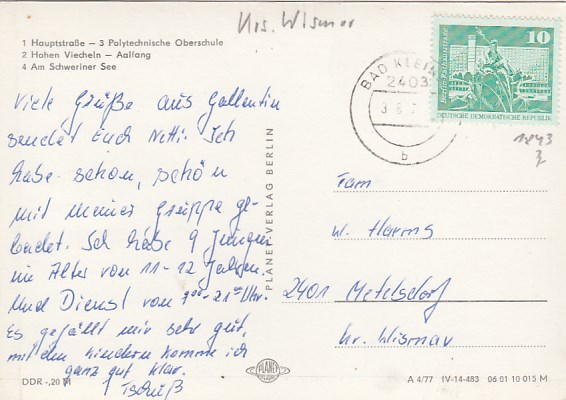 Krs. Wismar
1 Hauptstraße – 3 Polytechnische Oberschule
2 Hohen Viecheln – Aalfang
4 Am Schweriner See
10
Berlin, Rathausstraße
DEUTSCHE DEMOKRATISCHE REPUBLIK
BAD KLEIN
2403
b
1843
Viele Grüße aus Gallentin
sendet Euch Netti. Ich
habe schon, schön
mit meiner Gruppe ge-
badet. Ich habe 9 Jungen
im Alter von 11-12 Jahren.
Und Dienst von 7⁰⁰-21⁰⁰ Uhr.
Es gefällt mir sehr gut,
mit den Kindern komme ich
ganz gut klar.
Tschüß
PLANET-VERLAG BERLIN
Fam
W. Harms
2401 Metelsdorf
Kr. Wismar
PLANET
DDR -,20 M
A 4/77 IV-14-483 06 01 10 015 M